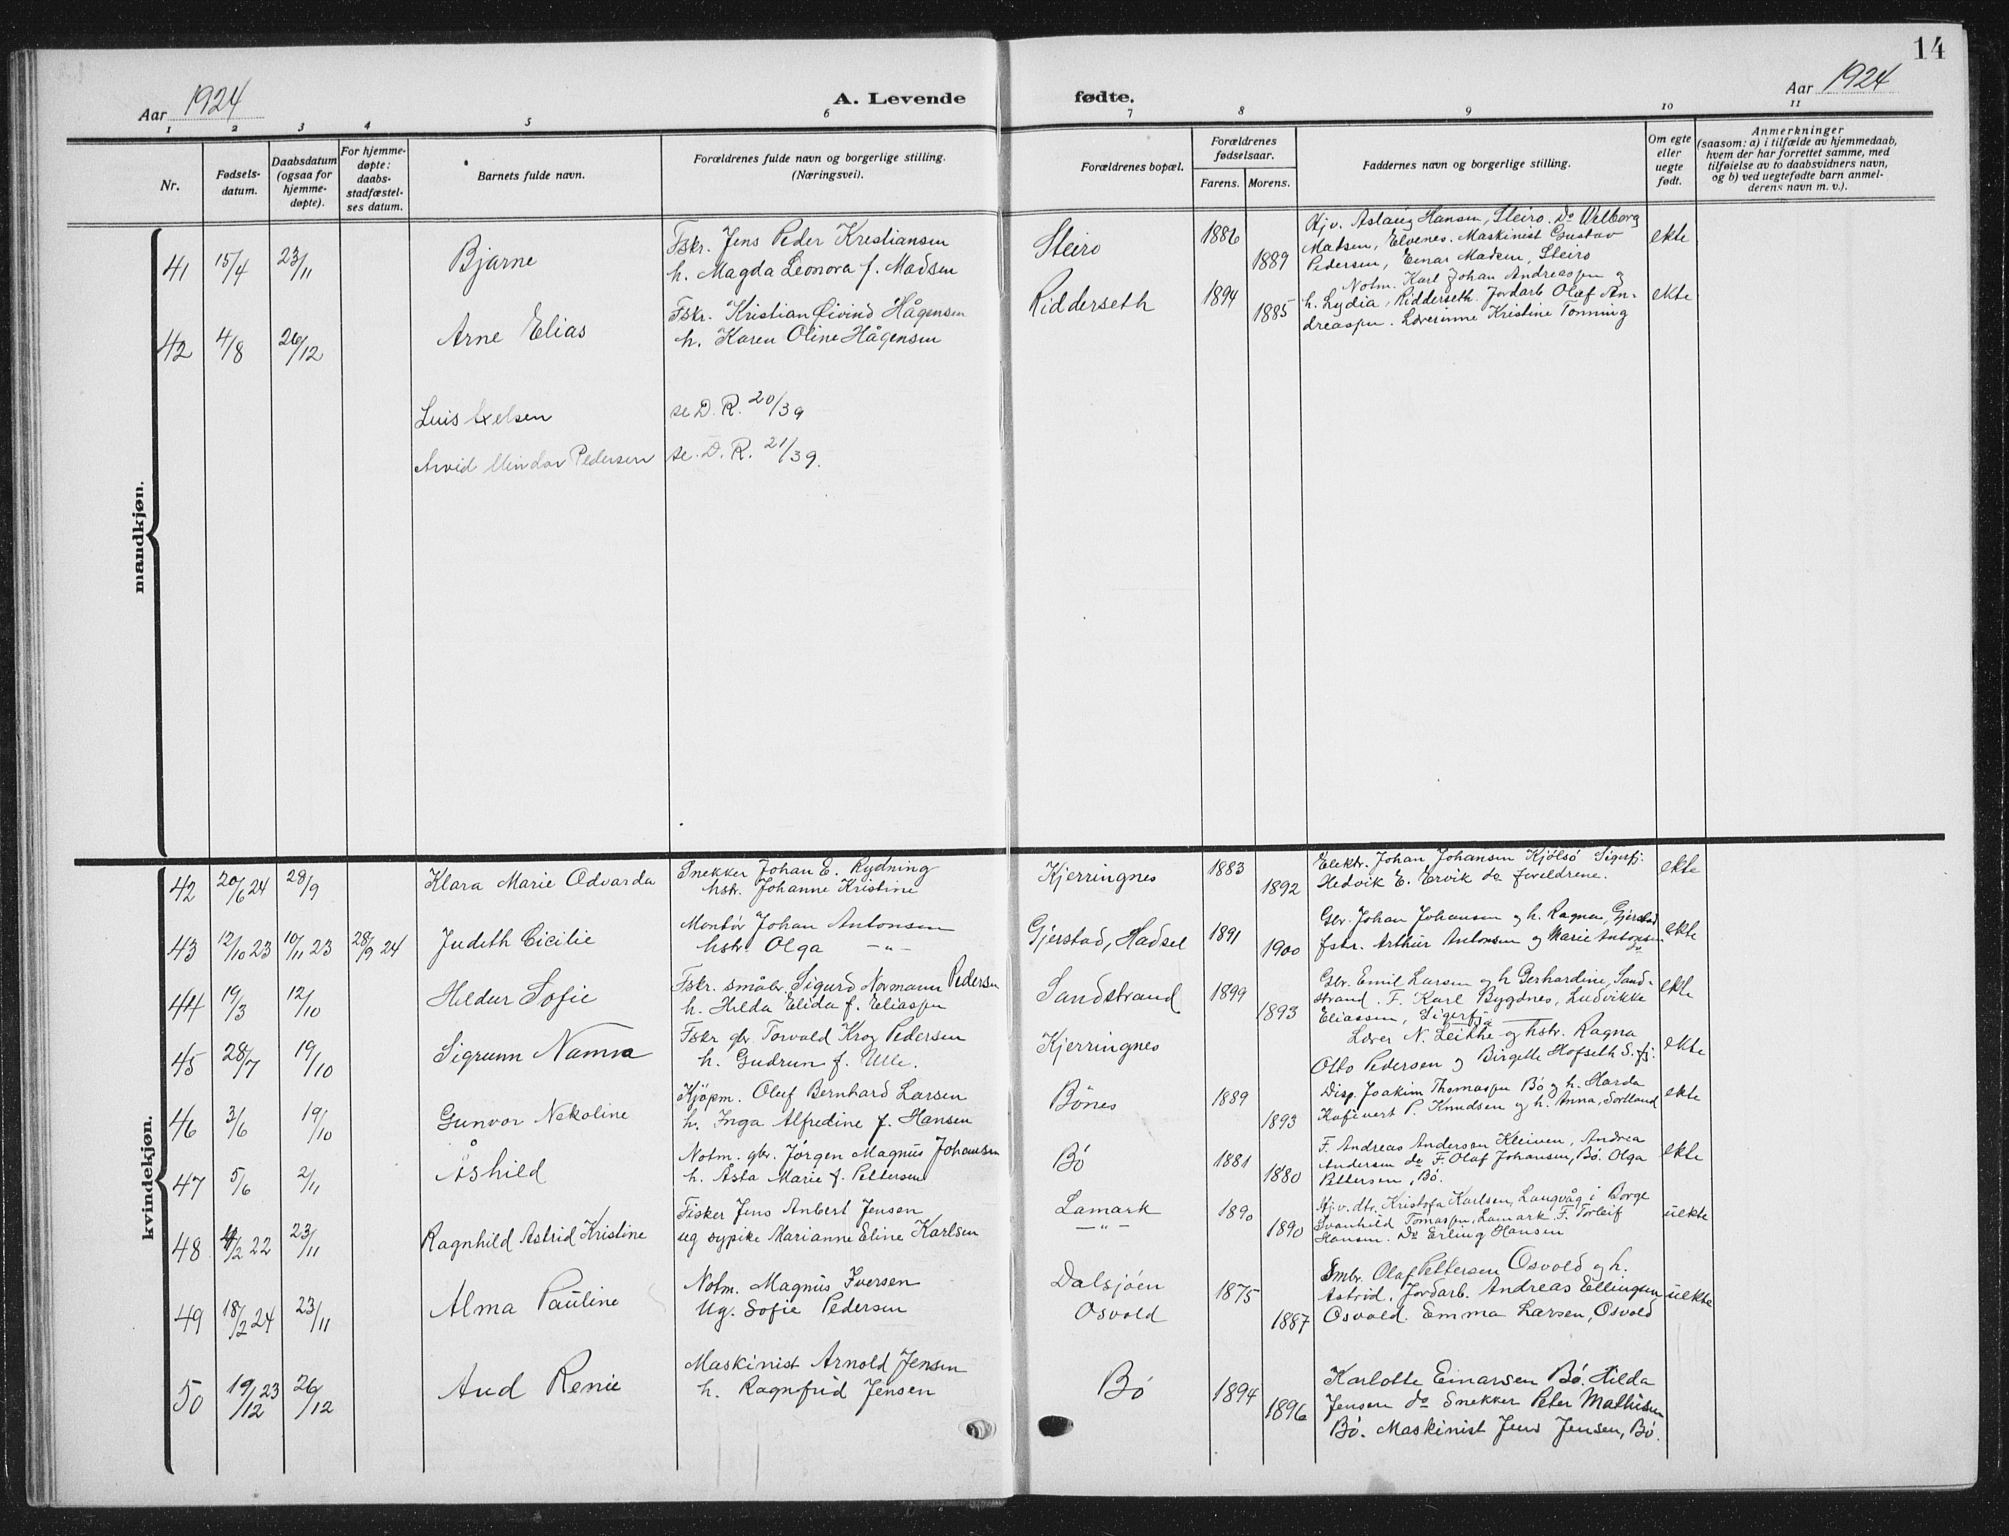 14
Aar 1924
A. Levende fødte.
Aar 1924
1 2 3 4 5 6 7 8 9 10 11
Nr.
Fødsels-
datum.
Daabsdatum
(ogsaa for
hjemme-
døpte).
For hjemme-
døpte:
daabs-
stadfæstel-
ses datum.
Barnets fulde navn.
Forældrenes fulde navn og borgerlige stilling.
(Næringsvei).
Forældrenes bopæl.
Forældrenes
fødselsaar.
Farens. Morens.
Faddernes navn og borgerlige stilling.
Om egte
eller
uegte
født.
Anmerkninger
(saasom: a) i tilfælde av hjemmedaab,
hvem der har forrettet samme, med
tilføielse av to daabsvidners navn,
og b) ved uegtefødte barn anmel-
derens navn m. v.).
mandkjøn.
41 15/4 23/11 Bjarne
Fskr. Jens Peder Kristiansen
h. Magda Leonora f. Madsen
Steiro 1886 1889
Hjv. Aslaug Hansen, Steiro. Do Valborg
Madsen, Elvenes. Maskinist Gustav
Pedersen, Einar Madsen, Steiro
ekte
42 4/8 26/12 Arne Elias
Fskr. Kristian Eivind Hågensen
h. Karen Oline Hågensen
Ridderseth 1894 1885
Notm. Karl Johan Andreassen og
h. Lydia, Ridderseth. Jordarb. Olaf An-
dreassen. Lærerinne Kristine Tonning
ekte
Luis Axelsen se D. R. 20/39
Arvid Mindor Pedersen se. D. R. 21/39.
kvindekjøn.
42 20/6 24 28/9 Klara Marie Odvarda
Snekker Johan E. Rydning
hstr. Johanne Kristine
Kjerringnes 1883 1892
Elektr. Johan Johansen Kjölsö Sigerfj.
Hedvik E. Ervik do foreldrene.
ekte
43 12/10 23 10/11 23 28/9 24 Judith Cicilie
Montør Johan Antonsen
hstr. Olga —"—
Gjerstad, Hadsel 1891 1900
Gbr. Johan Johansen og h. Ragna, Gjerstad
fskr. Arthur Antonsen og Marie Antonsen do
ekte
44 19/3 12/10 Hildur Sofie
Fskr. småbr. Sigurd Normann Pedersen
h. Hilda Elida f. Eliassen
Sandstrand 1899 1893
Gbr. Emil Larsen og h Gerhardine, Sand-
strand. F. Karl Bygdnes, Ludvikke
Eliassen, Sigerfj.
ekte
45 28/7 19/10 Sigrunn Nanna
Fskr gbr. Torvald Krog Pedersen
h. Gudrun f. Ulle.
Kjerringnes
Lærer N. Leikhe og hstr. Ragna
Otto Pedersen og Birgitte Hofseth S.fj.
ekte
46 3/6 19/10 Gunvor Nekoline
Kjöpm. Oluf Bernhard Larsen
h. Inga Alfredine f. Hansen
Bönes 1889 1893
Disp. Joakim Thomassen Bö og h. Harda
Kafévert P. Knudsen og h. Anna, Sortland
ekte
47 5/6 2/11 Åshild
Notm. gbr. Jörgen Magnus Johansen
h. Åsta Marie f. Pettersen
Bö 1881 1880
F. Andreas Andersen Kleiven, Andrea
Andersen do F. Olaf Johansen, Bö. Olga
Pettersen, Bö.
ekte
48 4/2 22 23/11 Ragnhild Astrid Kristine
Fisker Jens Anbert Jensen
ug sypike Marianne Eline Karlsen
Lamark 1890
—"— 1890
Hjv. dtr. Kristofa Karlsen, Langvåg i Borge
Svanhild Tomassen, Lamark F. Torleif
Hansen. Do Erling Hansen
uekte
49 18/2 24 23/11 Alma Pauline
Notm. Magnus Iversen
Ug. Sofie Pedersen
Dalsjöen 1875
Osvold 1887
Smbr. Olaf Pettersen Osvold og h.
Astrid, Jordarb. Andreas Ellingsen
Osvold. Emma Larsen, Osvold
uekte
50 19/12 23 26/12 Aud Renie
Maskinist Arnold Jensen
h. Ragnfrid Jensen
Bö 1894 1896
Karlotte Einarsen Bö. Hilda
Jensen do Snekker Peter Mathisen
Bö. Maskinist Jens Jensen, Bö.